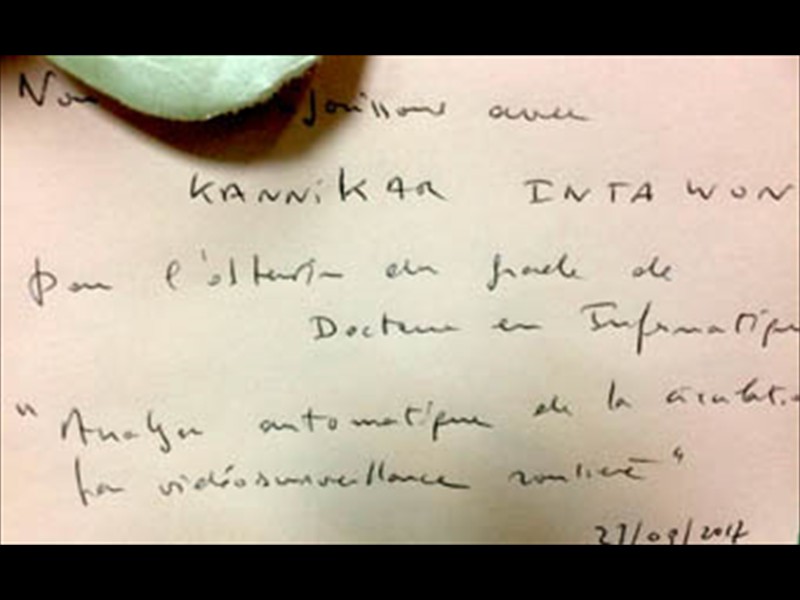 Nou jouissons avec
KANNIKAR INTAWON
pour l'obtention du grade de
Docteur en Informatiqu
"Analyse automatique de la circulatio
par vidéosurveillance routière"
27/09/2017